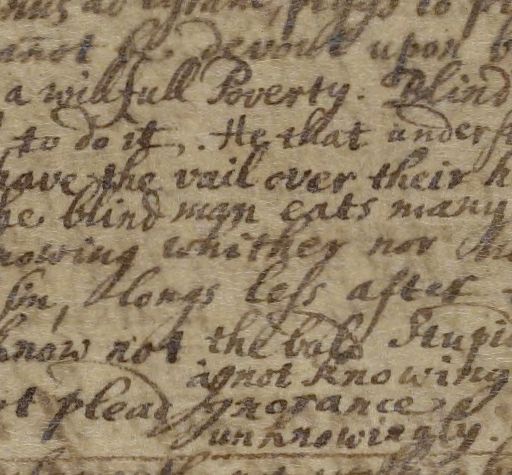 cannot be devout upon
a willfull Poverty. Blind
to do it, . He that underst
have the vail over their h
he blind man eats many
nowing whither nor
sin, longs less after
know not the bab Stupid
agnot knowing
ot plead ygnorance
unknowingly.